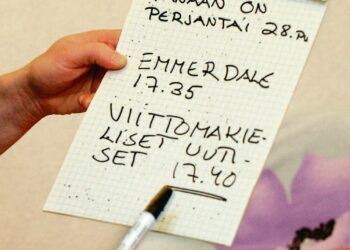 ON
PERJANTAI 28.
EMMERDALE
17.35
VIITTOMAKIE-
LISET UUTI-
SET 17.40